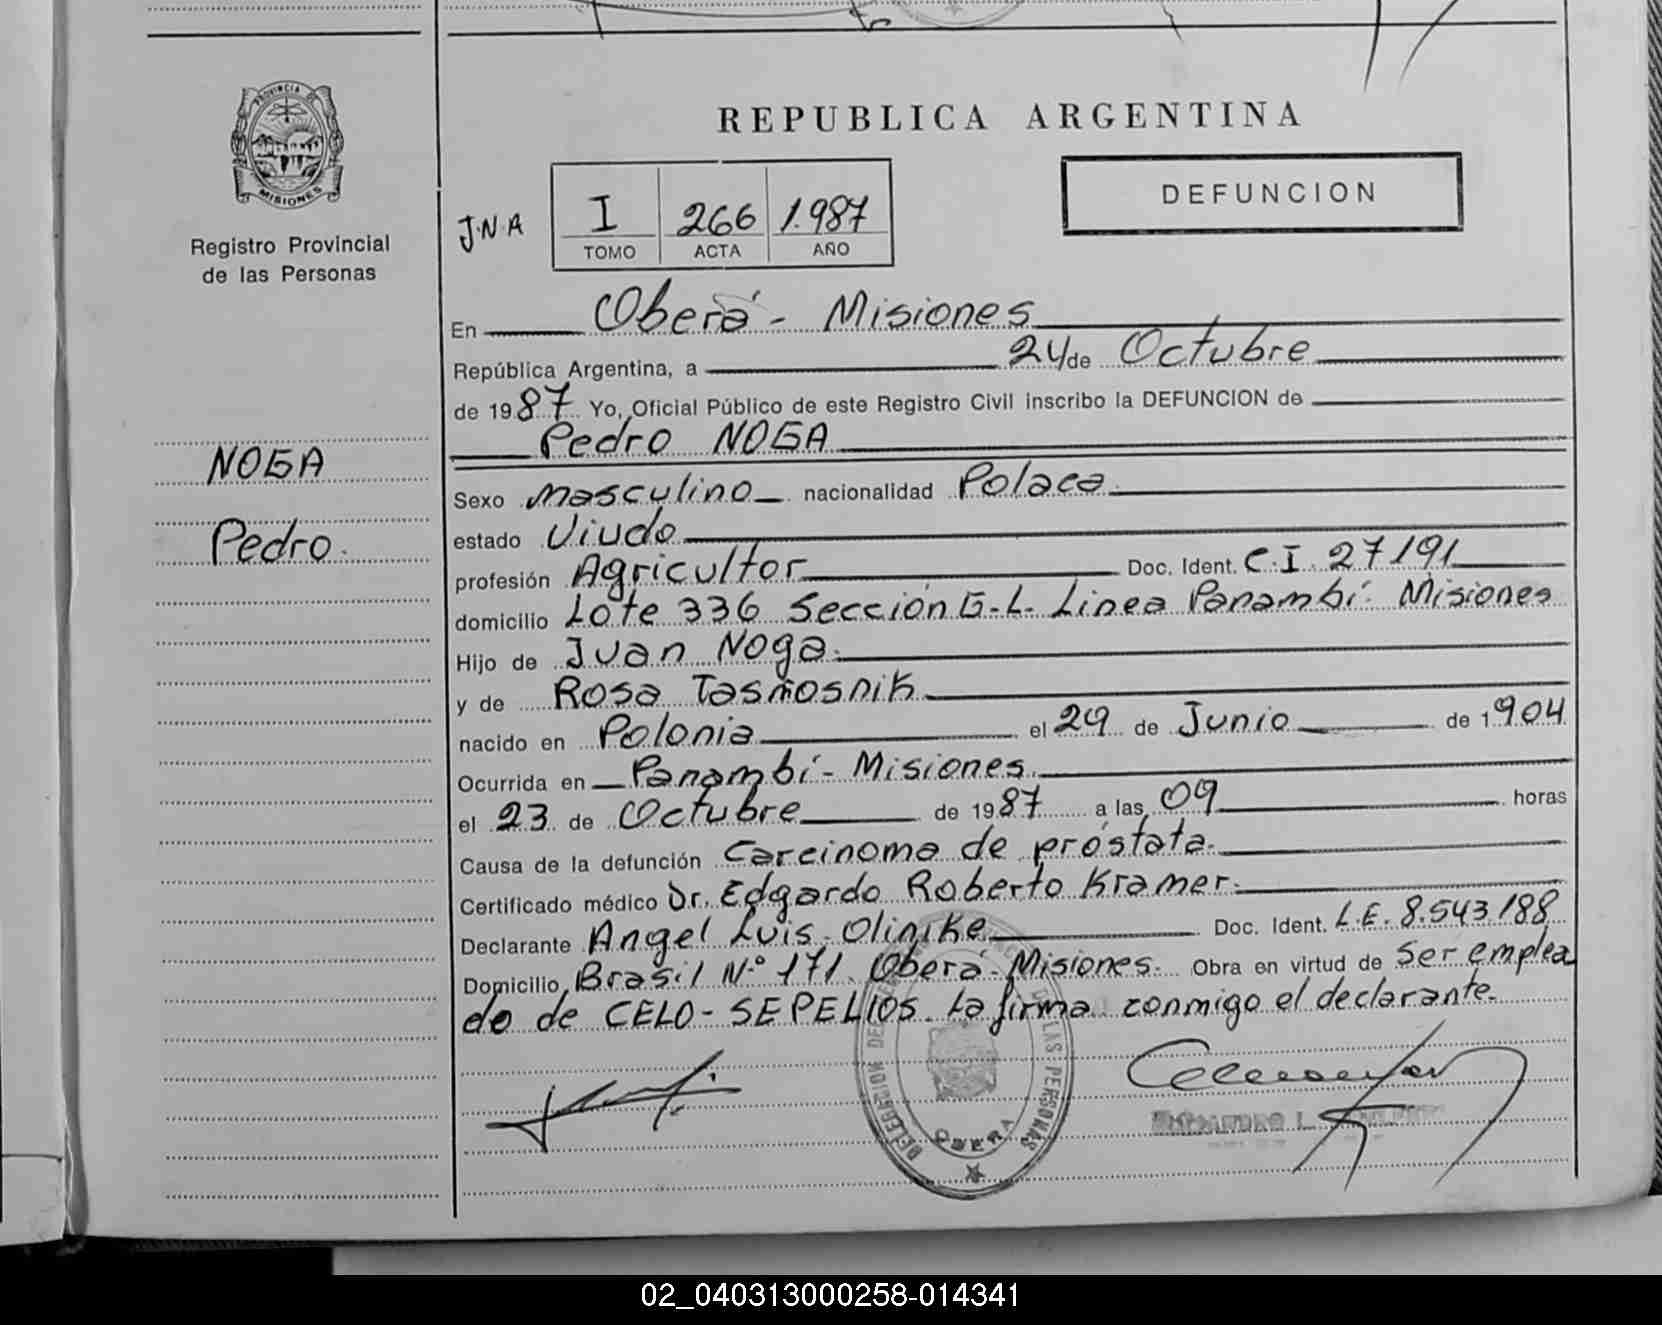 PROVINCIA DE
MISIONES
Registro Provincial
de las Personas
NOGA
Pedro.
REPUBLICA ARGENTINA
DEFUNCION
J.N.A
I 266 1.987
TOMO ACTA AÑO
En Oberá - Misiones
República Argentina, a 24 de Octubre
de 1987 Yo, Oficial Público de este Registro Civil inscribo la DEFUNCION de
Pedro NOGA
Sexo masculino nacionalidad Polaca
estado Viudo
profesión Agricultor Doc. Ident. C.I. 27191
domicilio Lote 336 Sección G.L. Linea Panambí. Misiones
Hijo de Juan Noga.
y de Rosa Tasmosnik
nacido en Polonia el 29 de Junio de 1904
Ocurrida en Panambí - Misiones
el 23 de Octubre de 1987 a las 09 horas
Causa de la defunción Carcinoma de próstata.
Certificado médico Dr. Edgardo Roberto Kramer.
Declarante Angel Luis Olinike Doc. Ident. L.E. 8.543188
Domicilio Brasil N.º 171. Oberá - Misiones. Obra en virtud de ser emplea
do de CELO - SEPELIOS. La firma conmigo el declarante.
DE LAS PERSONAS
OBERA
02_040313000258-014341